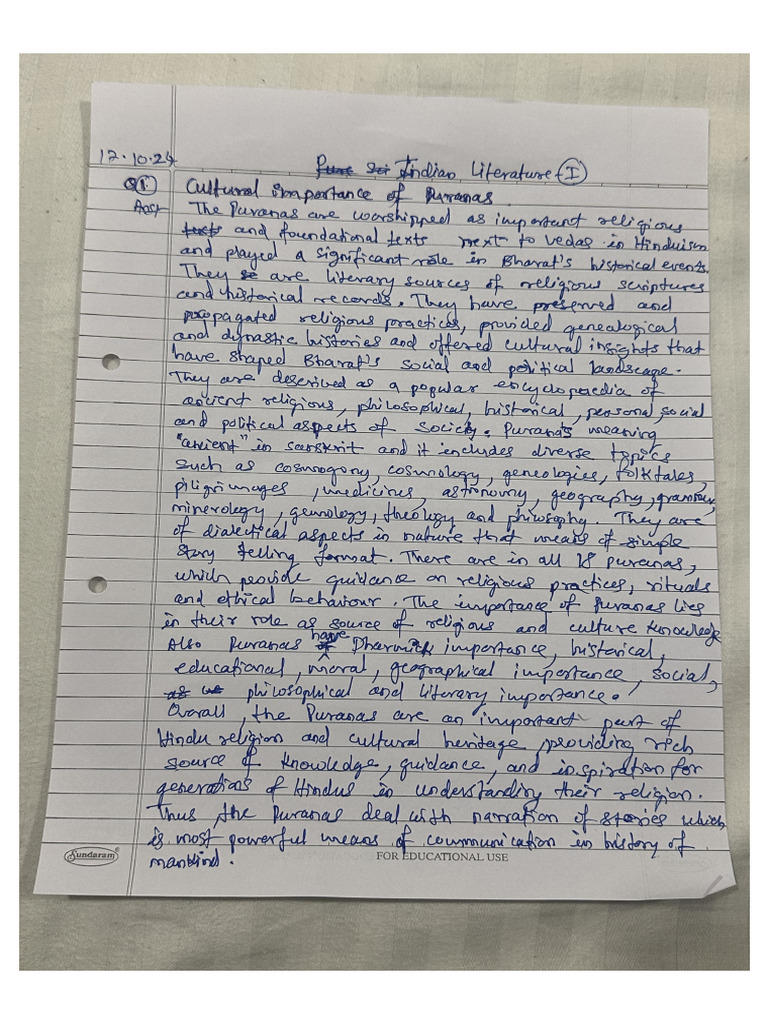 12.10.24 Indian Literature-I
Q1. Cultural importance of Puranas.
Ans. The Puranas are worshipped as important religious
texts and foundational texts next to Vedas in Hinduism
and played a significant role in Bharat's historical events.
They are literary sources of religious scriptures
and historical records. They have preserved and
propagated religious practices, provided genealogical
and dynastic histories and offered cultural insights that
have shaped Bharat's social and political landscape.
They are described as a popular encyclopaedia of
ancient religious, philosophical, historical, personal, social
and political aspects of society. Puranas meaning
"ancient" in sanskrit and it includes diverse topics
such as cosmogony, cosmology, geneologies, folktales,
piligrimages, medicines, astronomy, geography, grammar,
minerology, gemology, theology and philosophy. They are
of dialectical aspects in nature that means of simple
story telling format. There are in all 18 puranas,
which provide guidance on religious practices, rituals
and ethical behaviour. The importance of Puranas lies
in their role as source of religious and culture knowledge
Also Puranas have Dharmick importance, historical,
educational, moral, geographical importance, social,
philosophical and literary importance.
Overall, the Puranas are an important part of
Hindu religion and cultural heritage providing rich
source of knowledge, guidance, and inspiration for
generations of Hindus in understanding their religion.
Thus the Puranas deal with narration of stories which
is most powerful means of communication in history of
mankind.
Sundaram® FOR EDUCATIONAL USE